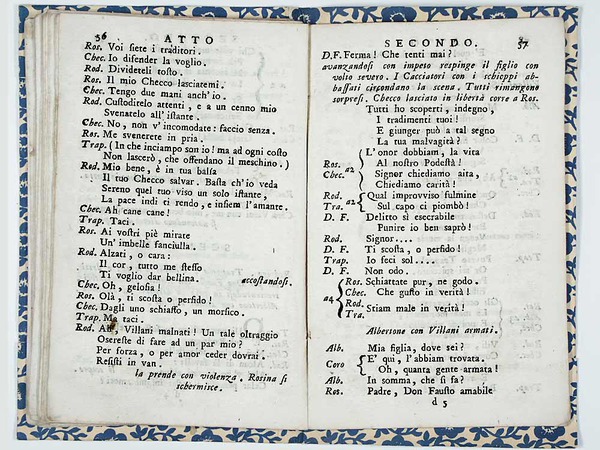 56 ATTO
Ros. Voi siete i traditori.
Chec. Io difender la voglio.
Rod. Divideteli tosto.
Ros. Il mio Checco lasciatemi.
Chec. Tengo due mani anch'io.
Rod. Custoditelo attenti, e a un cenno mio
Svenatelo all'istante.
Chec. No, non v'incomodate: faccio senza.
Ros. Me svenerete in pria.
Trap. (In che inciampo son io! ma ad ogni costo
Non lascerò, che offendano il meschino.)
Rod. Mio bene, è in tua balsa
Il tuo Checco salvar. Basta ch'io veda
Sereno quel tuo viso un solo istante,
La pace indi ti rendo, e insiem l'amante.
Chec. Ah cane cane!
Trap. Taci.
Ros. Ai vostri piè mirate
Un' imbelle fanciulla.
Rod. Alzati, o cara:
Il cor, tutto me stesso
Ti voglio dar bellina. accostandosi.
Chec. Oh, gelosia!
Ros. Olà, ti scosta o perfido!
Chec. Dagli uno schiaffo, un morsico.
Trap. Ma taci.
Rod. Ah, Villani malnati! Un tale oltraggio
Osereste di fare ad un par mio?
Per forza, o per amor ceder dovrai.
Resisti in van.
la prende con violenza. Rosina si
schermisce.
SECONDO. 57
D.F. Ferma! Che tenti mai?
avanzandosi con impeto respinge il figlio con
volto severo. I Cacciatori con i schioppi ab-
bassati circondano la scena. Tutti rimangono
sorpresi. Checco lasciato in libertà corse a Ros.
Tutti ho scoperti, indegno,
I tradimenti tuoi!
E giunger può a tal segno
La tua malvagità?
Ros. Chec. a2 L'onor dobbiam, la vita
Al nostro Podestà!
Signor chiediamo aita,
Chiediamo carità!
Rod. Tra. a2 Qual improvviso fulmine
Sul capo ci piombò!
D. F. Delitto sì esecrabile
Punire io ben saprò!
Rod. Signor....
D. F. Ti scosta, o perfido!
Trap. Io feci sol....
D. F. Non odo.
a4 Ros. Schiattate pur, ne godo.
Chec. Che gusto in verità!
Rod. Tra. Stiam male in verità!
Albersone con Villani armati.
Alb. Mia figlia, dove sei?
Coro E' quì, l'abbiam trovata.
Oh, quanta gente armata!
Alb. In somma, che si fa?
Ros. Padre, Don Fausto amabile
d 5